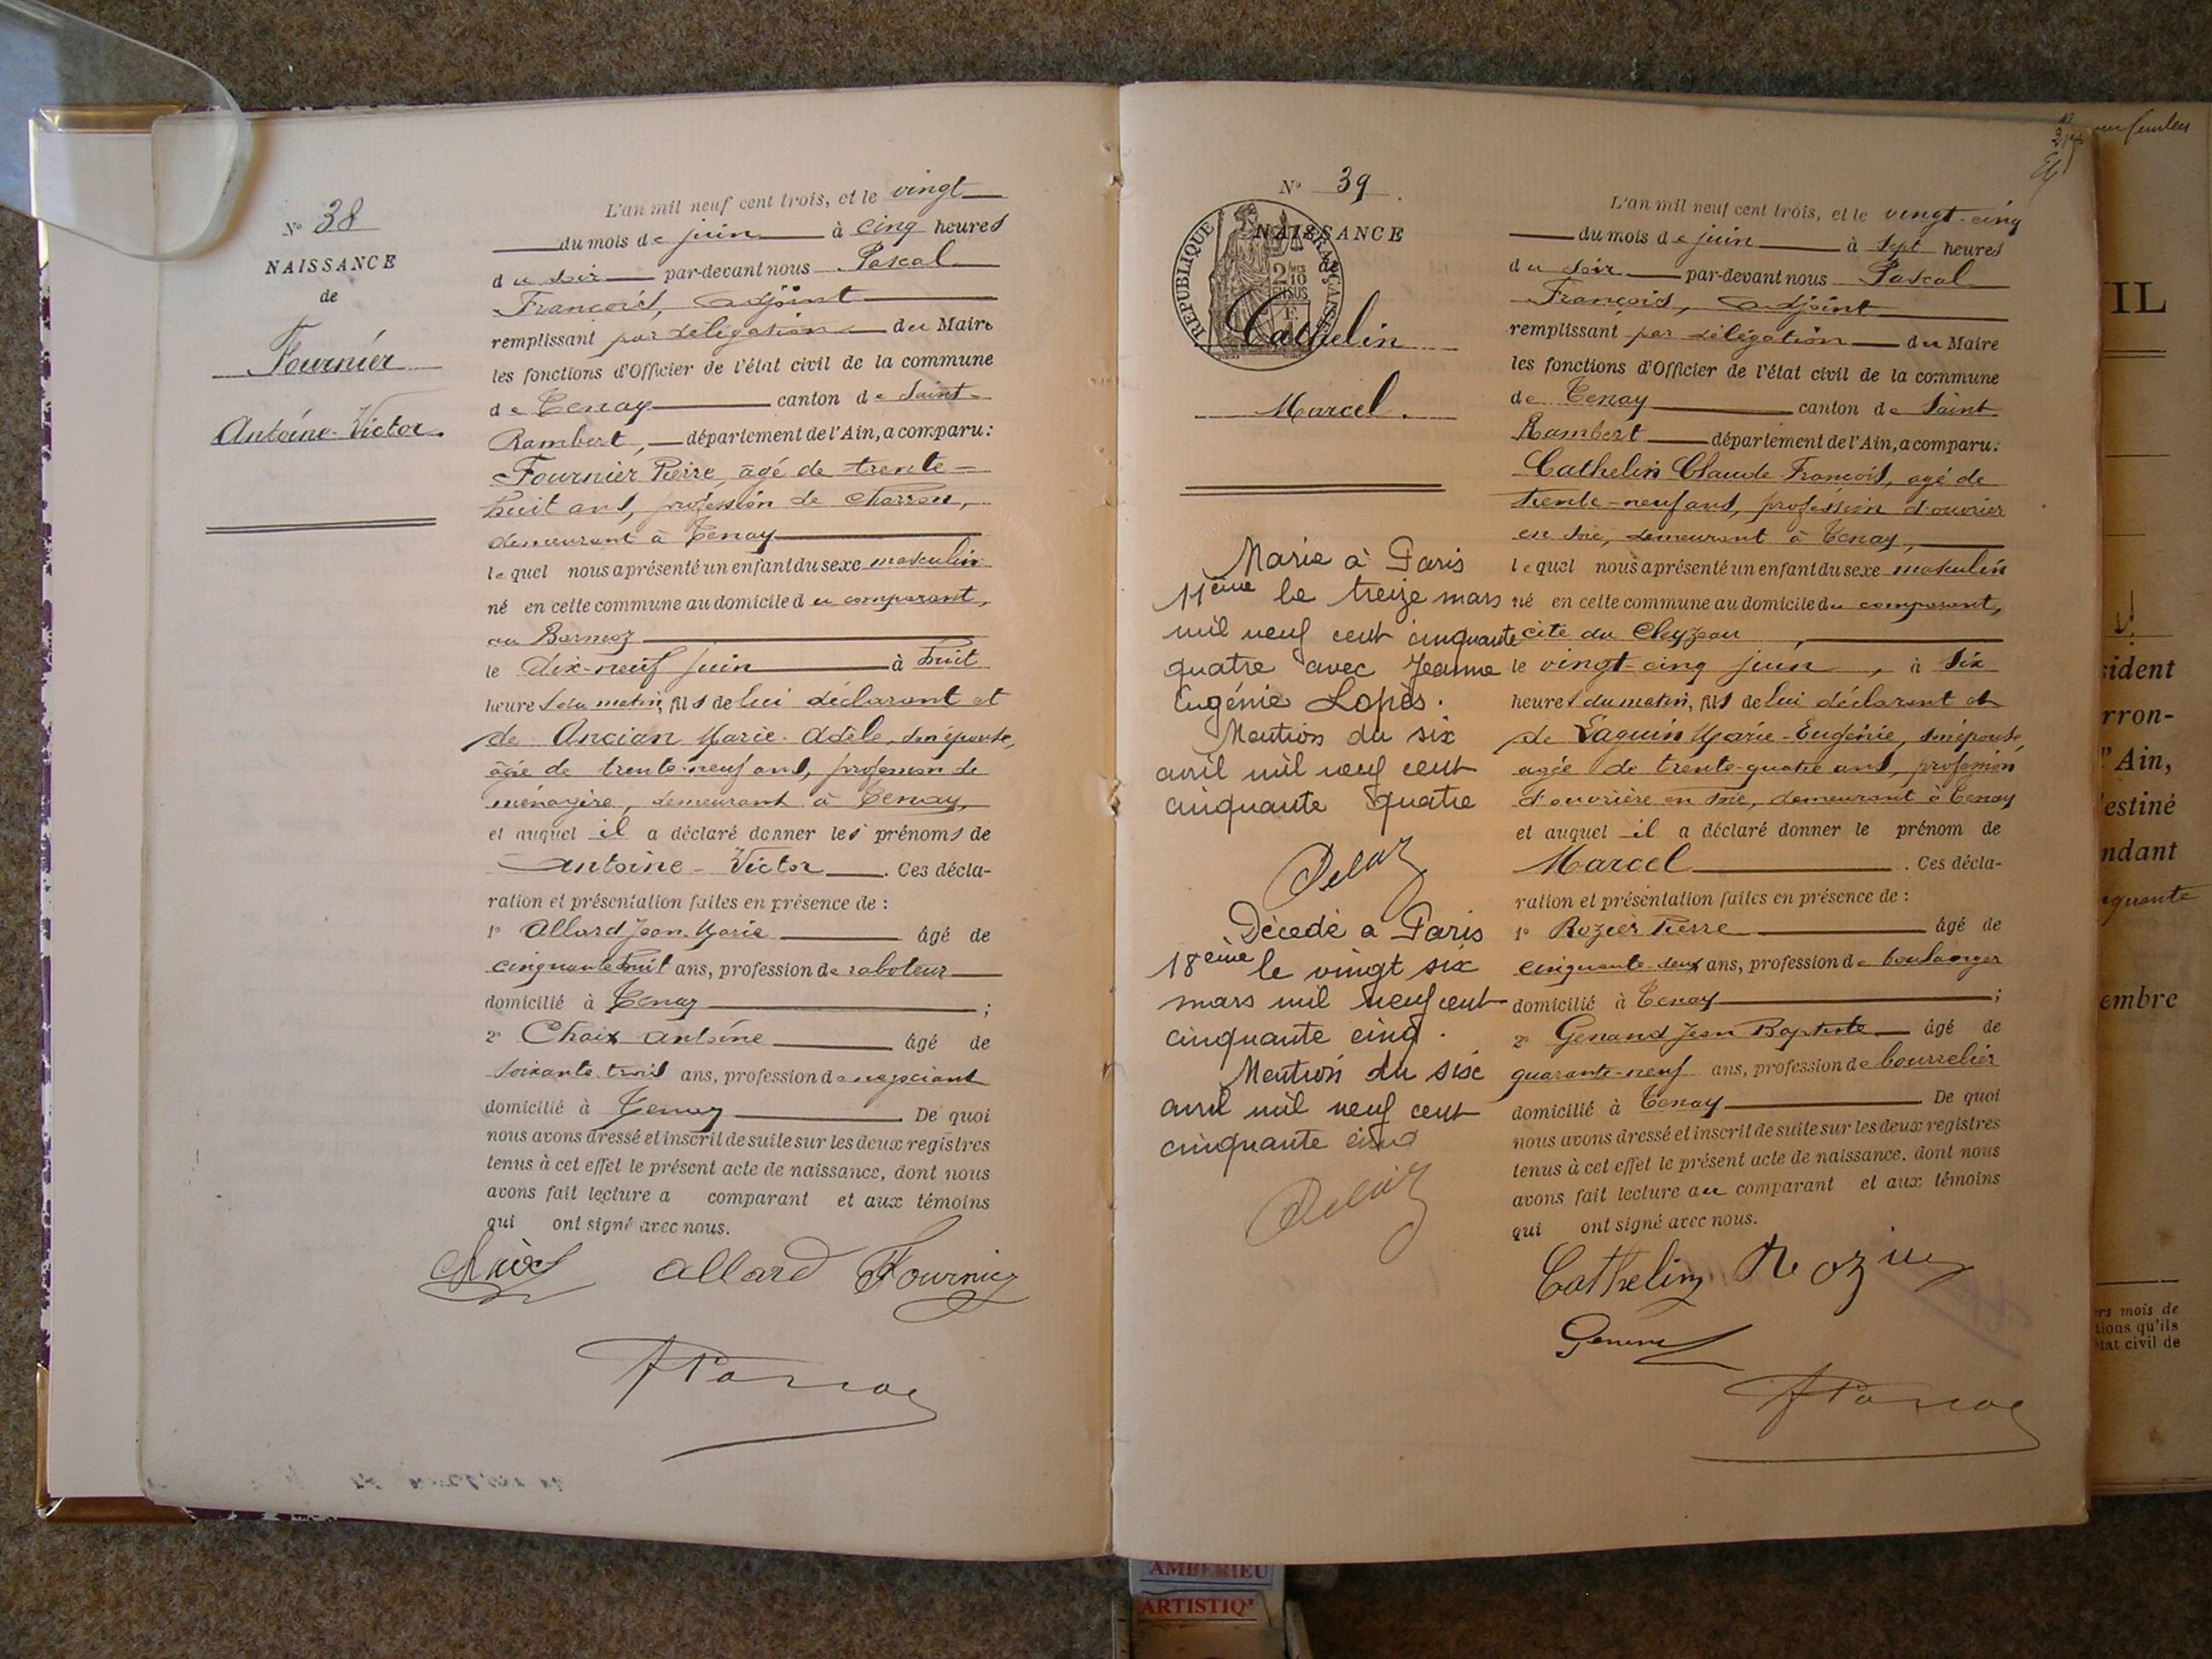 N° 38
NAISSANCE
de
Fournier
Antoine-Victor.
L'an mil neuf cent trois, et le vingt
du mois de juin à cinq heures
du soir par-devant nous Pascal
François, adjoint
remplissant par délégation du Maire
les fonctions d'Officier de l'état civil de la commune
de Tenay canton de Saint-
Rambert, département de l'Ain, a comparu:
Fournier Pierre, âgé de trente-
huit ans, profession de charron,
demeurant à Tenay
lequel nous a présenté un enfant du sexe masculin
né en cette commune au domicile du comparant,
au
le dix-neuf juin à huit
heures du matin, fils de lui déclarant et
de Ancian Marie-Adèle, son épouse,
âgée de trente-neuf ans, profession de
ménagère, demeurant à Tenay,
et auquel il a déclaré donner les prénoms de
Antoine-Victor. Ces décla-
ration et présentation faites en présence de :
1° Allard Jean-Marie âgé de
cinquante huit ans, profession de raboteur
domicilié à Tenay ;
2° Chaix Antoine âgé de
soixante trois ans, profession de negociant
domicilié à Tenay De quoi
nous avons dressé et inscrit de suite sur les deux registres
tenus à cet effet le présent acte de naissance, dont nous
avons fait lecture a comparant et aux témoins
qui ont signé avec nous.
Chaix Allard Fournier
N° 39
NAISSANCE
de
RÉPUBLIQUE FRANÇAISE
2/10
EN SUS
Cathelin
Marcel.
Marié à Paris
11ème le treize mars
mil neuf cent cinquante
quatre avec Jeanne
Eugénie Lopès.
Mention du six
avril mil neuf cent
cinquante quatre
Décédé à Paris
18ème le vingt six
mars mil neuf cent
cinquante cinq.
Mention du six
avril mil neuf cent
cinquante cinq
L'an mil neuf cent trois, et le vingt-cinq
du mois de juin à sept heures
du soir par-devant nous Pascal
François, adjoint
remplissant par délégation du Maire
les fonctions d'Officier de l'état civil de la commune
de Tenay canton de Saint
Rambert département de l'Ain, a comparu:
Cathelin Claude-François, agé de
trente-neuf ans, profession d'ouvrier
en soie, demeurant à Tenay,
lequel nous a présenté un enfant du sexe masculin
né en cette commune au domicile du comparant,
cité du
le vingt-cinq juin, à six
heures du matin, fils de lui déclarant et
de Marie-Eugénie, son épouse,
agée de trente-quatre ans, profession
d'ouvrière en soie, demeurant à Tenay
et auquel il a déclaré donner le prénom de
Marcel. Ces décla-
ration et présentation faites en présence de :
1° Rozier Pierre âgé de
cinquante-deux ans, profession de boulanger
domicilié à Tenay ;
2° Genand Jean Baptiste âgé de
quarante-neuf ans, profession de bourrelier
domicilié à Tenay De quoi
nous avons dressé et inscrit de suite sur les deux registres
tenus à cet effet le présent acte de naissance, dont nous
avons fait lecture au comparant et aux témoins
qui ont signé avec nous.
Cathelin Rozier
IL
ident
rron-
l'Ain,
estiné
ndant
embre
rs mois de
tions qu'ils
état civil de
AMBERIEU
ARTISTIQ'